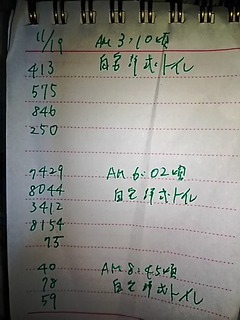 11/19 AM 3:10頃
413 自宅洋式トイレ
575
846
250
7429 AM 6:02頃
8044 自宅洋式トイレ
3412
8154
73
40 AM 8:45頃
78 自宅洋式トイレ
59